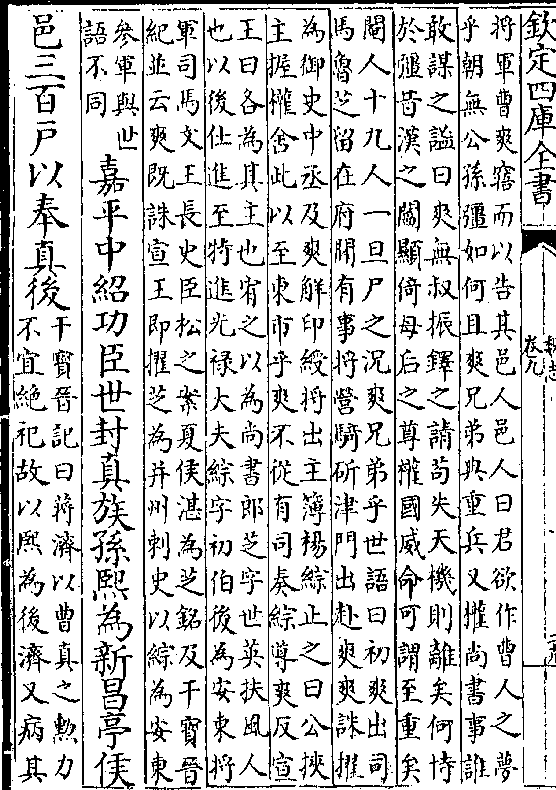 欽定四庫全書
卷九
將軍曹爽寤而以告其邑人邑人曰君欲作曹人之夢
乎朝無公孫彊如何且爽兄弟典重兵又攉尚書事誰
敢謀之謐曰爽無叔振鐸之請苟失天機則離矣何恃
於彊昔漢之閻顯倚母后之尊權國威命可謂至重矣
閹人十九人一旦尸之况爽兄弟乎世語曰初爽出司
馬魯芝留在府聞有事將營騎斫津門出赴爽爽誅擢
為御史中丞及爽解印綬將出主簿楊綜止之曰公挾
主握權舍此以至東市乎爽不從有司奏綜導爽反宣
王曰各為其主也宥之以為尚書郎芝字世英扶風人
也以後仕進至特進光祿大夫綜字初伯後為安東將
軍司馬文王長史臣松之案夏侯湛為芝銘及干寶晉
紀並云爽既誅宣王即擢芝為并州刺史以綜為安東
參軍與世
語不同
嘉平中紹功臣世封真族孫熙為新昌亭侯
邑三百戶以奉真後
干寶晉記曰蔣濟以曹真之勲力
不宜絕祀故以熙為後濟又病其